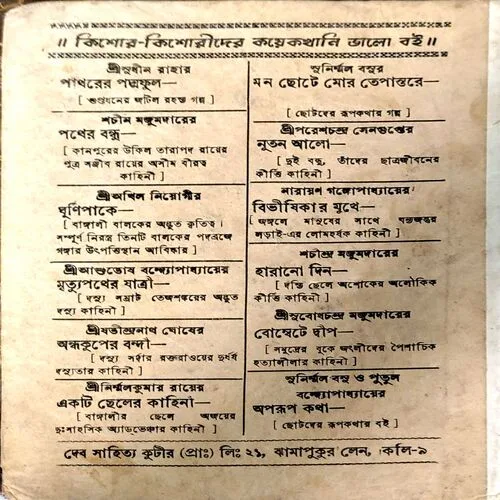 ॥ কিশোর-কিশোরীদের কয়েকখানি ভালো বই ॥
শ্রীসুধীন রাহার
পাথরের পদ্মফুল—
[ গুপ্তধনের জটিল রহস্য গল্প ]
শচীন মজুমদারের
পথের বন্ধু—
[ কানপুরের উকিল তারাপদ রায়ের
পুত্র সঞ্জীব রায়ের অসীম বীরত্ব
কাহিনী ]
শ্রীঅখিল নিয়োগীর
ঘূর্ণিপাকে—
[ বাঙ্গালী বালকের অদ্ভুত কৃতিত্ব ।
সম্পূর্ণ নিরস্ত্র তিনটি বালকের পদব্রজে
গঙ্গার উৎপত্তিস্থান আবিষ্কার ]
শ্রীআশুতোষ বন্দ্যোপাধ্যায়ের
মৃত্যুপথের যাত্রী—
[ দস্যু সম্রাট তেজশঙ্করের অদ্ভুত
দস্যু কাহিনী ]
শ্রীযতীন্দ্রনাথ ঘোষের
অন্ধকূপের বন্দী—
[ দস্যু সর্দার রক্তরাওয়ের দুর্ধর্ষ
দস্যুতার কাহিনী ]
শ্রীনির্ম্মলকুমার রায়ের
একটি ছেলের কাহিনী—
[ বাঙ্গালীর ছেলে অজয়ের
দুঃসাহসিক অ্যাড্‌ভেঞ্চার কাহিনী ]
সুনির্ম্মল বসুর
মন ছোটে মোর তেপান্তরে—
[ ছোটদের রূপকথার গল্প ]
শ্রীপরেশচন্দ্র সেনগুপ্তের
নূতন আলো—
[ দুই বন্ধু, তাঁদের ছাত্রজীবনের
কীর্ত্তি কাহিনী ]
নারায়ণ গঙ্গোপাধ্যায়ের
বিভীষিকার মুখে—
[ জঙ্গলে মানুষের সাথে বন্যজন্তুর
লড়াই-এর লোমহর্ষক কাহিনী ]
শচীন্দ্র মজুমদারের
হারানো দিন—
[ দস্যি ছেলে অশোকের অলৌকিক
কীর্ত্তি কাহিনী ]
শ্রীসুবোধচন্দ্র মজুমদারের
বোম্বেটে দ্বীপ—
[ সমুদ্রের বুকে জংলীদের পৈশাচিক
হত্যালীলার কাহিনী ]
সুনির্ম্মল বসু ও পুতুল
বন্দ্যোপাধ্যায়ের
অপরূপ কথা—
[ ছোটদের রূপকথার বই ]
দেব সাহিত্য কুটীর (প্রাঃ) লিঃ ২১, ঝামাপুকুর লেন, কলি-৯